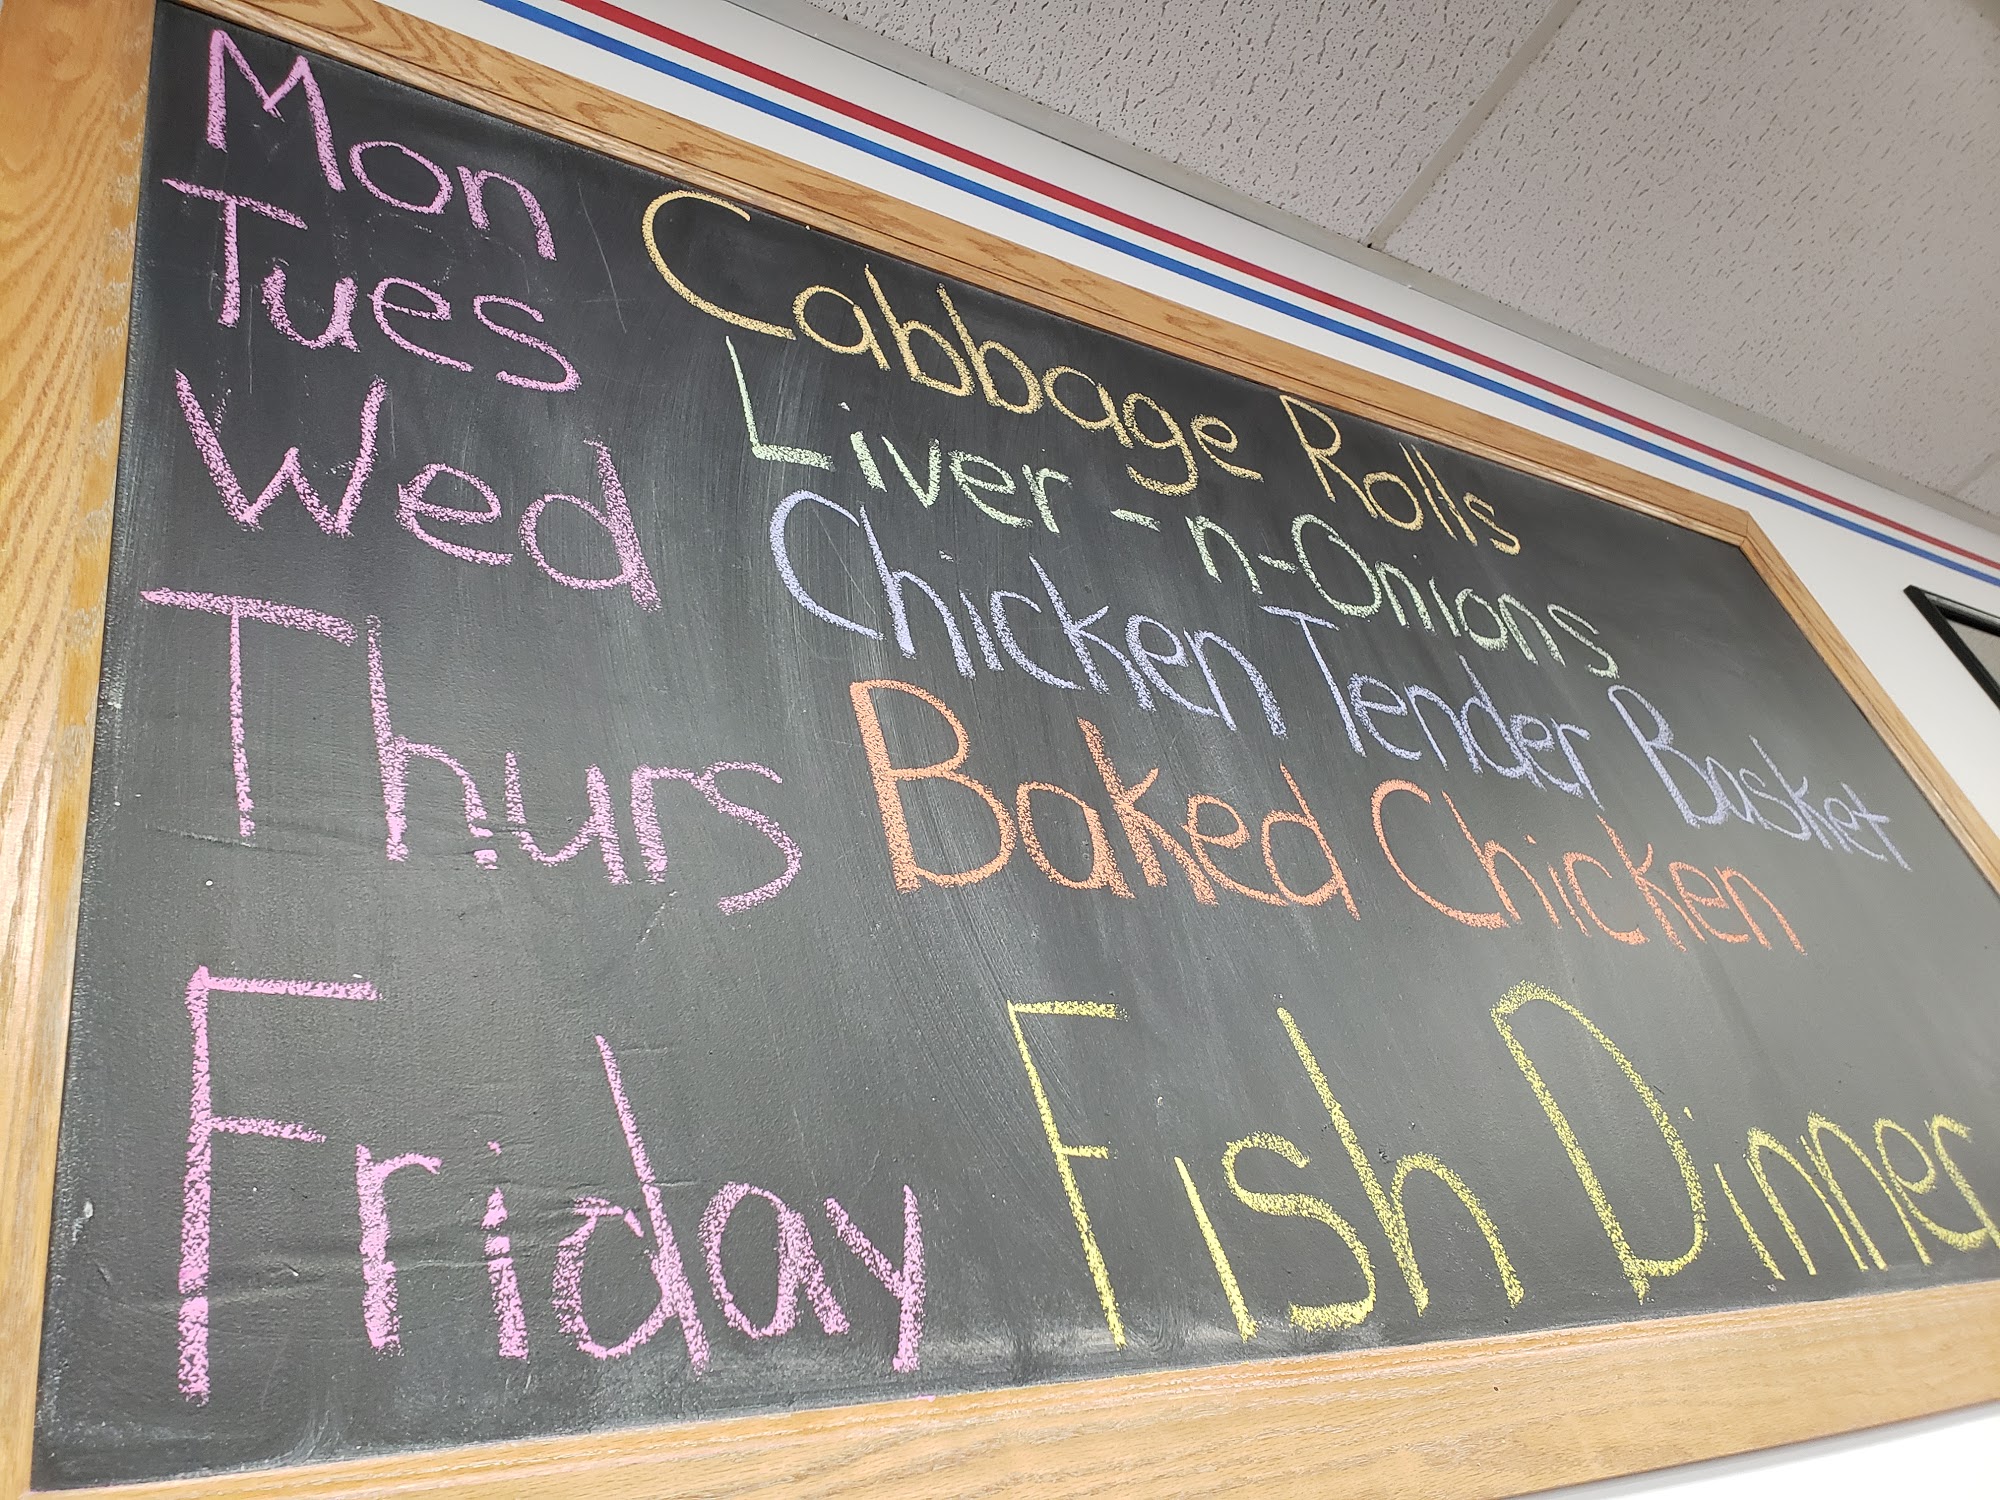 Mon Cabbage Rolls
Tues Liver-n-Onions
Wed Chicken Tender Basket
Thurs Baked Chicken
Friday Fish Dinner